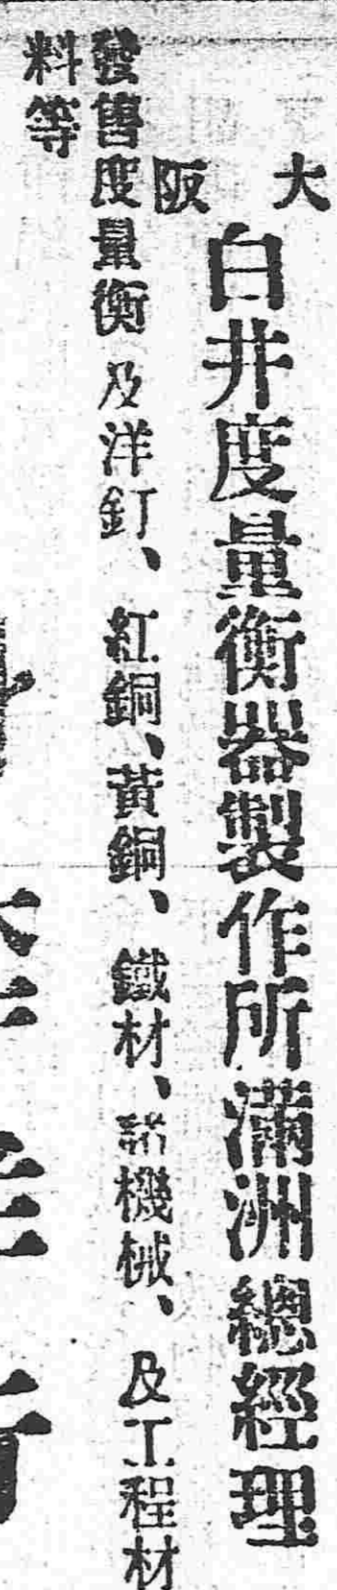 大阪
白井度量衡器製作所滿洲總經理
發售度量衡及洋釘、紅銅、黃銅、鐵材、諸機械、及工程材
料等